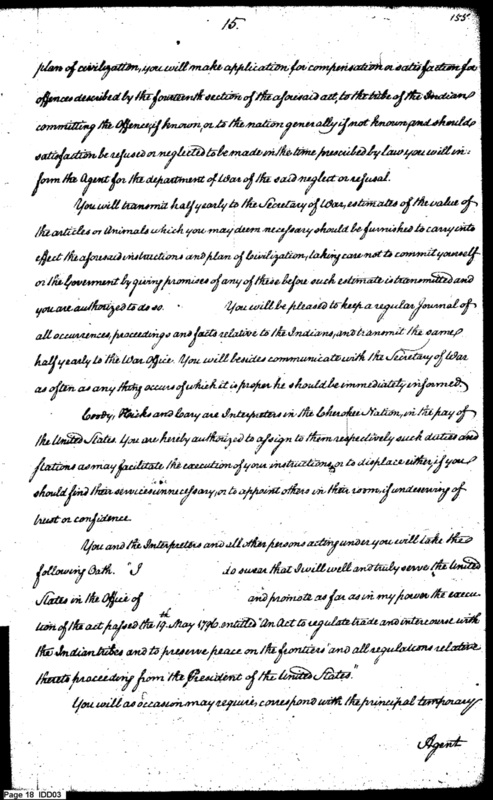 155
15.
plan of civilization, you will make application for compensation or satisfaction for
offences described by the fourteenth section of the aforesaid act, to the tribe of the Indian
committing the Offence, if known, or to the nation generally if not known, and should
satisfaction be refused or neglected to be made in the time prescribed by law you will in:
form the Agent for the department of War of the said neglect or refusal.
You will transmit half yearly to the Secretary of War, estimates of the value of
the articles or Animals which you may deem necessary should be furnished to carry into
effect the aforesaid instructions and plan of Civilization, taking care not to commit yourself
or the Goverment by giving promises of any of these before such estimate is transmitted and
you are authorized to do so. You will be pleased to keep a regular Journal of
all occurrences, proceedings and facts relative to the Indians, and transmit the same
half yearly to the War Office. You will besides communicate with the Secretary of War
as often as any thing occurs of which it is proper he should be immediately informed.
Coody, Hicks and Cary are Interpreters in the Cherokee Nation, in the pay of
the United States. You are hereby authorized to assign to them respectively such duties and
stations as may facilitate the execution of your instructions, or to displace either, if you
should find their services unnecessary, or to appoint others in their room, if undeserving of
trust or confidence.
You and the Interpreters and all other persons acting under you will take the
following Oath. "I do swear that I will well and truly serve the United
States in the Office of and promote as far as in my power the execu
tion of the act passed the 19th. May 1796 entitled "An Act to regulate trade and intercourse with
the Indian tribes and to preserve peace on the frontiers" and all regulations relative
thereto proceeding from the President of the United States."
You will as occasion may require, correspond with the principal temporary
Agent
Page 18 IDD03